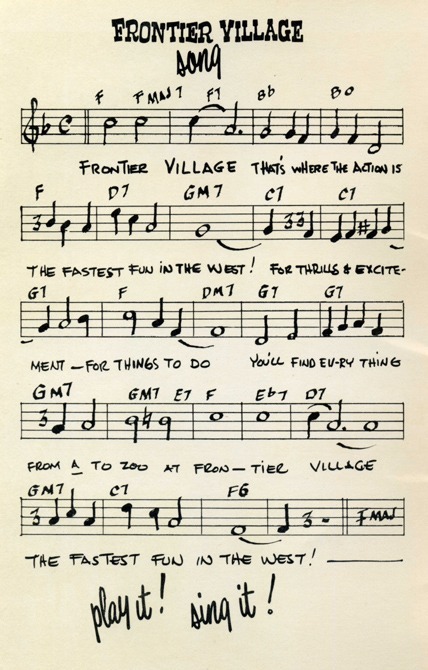 FRONTIER VILLAGE
song
F F MAJ7 F7 Bb Bo
FRONTIER VILLAGE THAT'S WHERE THE ACTION IS
F D7 GM7 C7 C7
THE FASTEST FUN IN THE WEST! FOR THRILLS & EXCITE-
G7 F DM7 G7 G7
MENT — FOR THINGS TO DO YOU'LL FIND EV-RY THING
GM7 GM7 E7 F Eb7 D7
FROM A TO ZOO AT FRON-TIER VILLAGE
GM7 C7 F6 F MAJ
THE FASTEST FUN IN THE WEST!
play it! sing it!